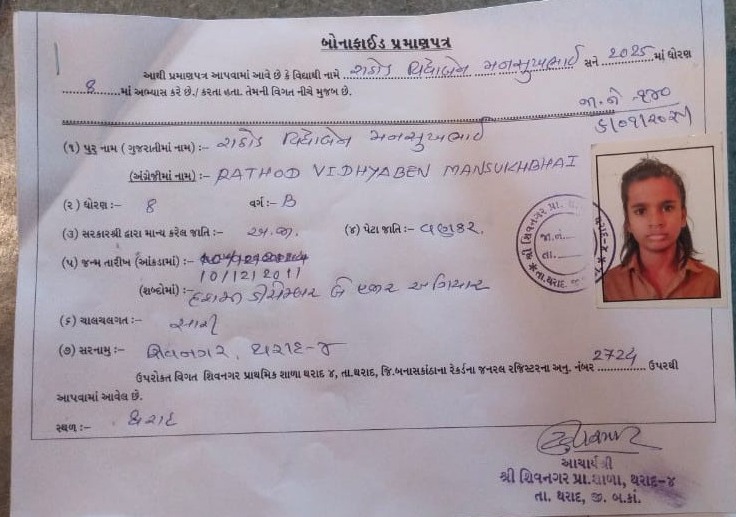 બોનાફાઈડ પ્રમાણપત્ર
આથી પ્રમાણપત્ર આપવામાં આવે છે કે વિદ્યાર્થી નામે રાઠોડ વિદ્યાબેન મનસુખભાઈ સને 2025 માં ધોરણ
8 માં અભ્યાસ કરે છે./ કરતા હતા. તેમની વિગત નીચે મુજબ છે.
જા.નં ૧૪૦
(૧) પુરુ નામ ( ગુજરાતીમાં નામ) :- રાઠોડ વિદ્યાબેન મનસુખભાઈ
(અંગ્રેજીમાં નામ) :- RATHOD VIDHYABEN MANSUKHBHAI
(૨) ધોરણ :- 8 વર્ગ :- B
(૩) સરકારશ્રી દ્વારા માન્ય કરેલ જાતિ :- અ.જા. (૪) પેટા જાતિ :- વણકર.
(૫) જન્મ તારીખ (આંકડામાં) :-
10/12/2011
(શબ્દોમાં) :- દશમી ડીસેમ્બર બે હજાર અગિયાર
(૬) ચાલચલગત :- સારી
(૭) સરનામુ :- શિવનગર, થરાદ-૪
ઉપરોક્ત વિગત શિવનગર પ્રાથમિક શાળા થરાદ ૪, તા.થરાદ, જિ.બનાસકાંઠાના રેકર્ડના જનરલ રજિસ્ટરના અનુ. નંબર 2724 ઉપરથી
આપવામાં આવેલ છે.
સ્થળ :- થરાદ
શ્રી શિવનગર પ્રા.
જા.નં.
તા.
તા.થરાદ, જી.
આચાર્યશ્રી
શ્રી શિવનગર પ્રા.શાળા, થરાદ-૪
તા. થરાદ, જી. બ.કાં.